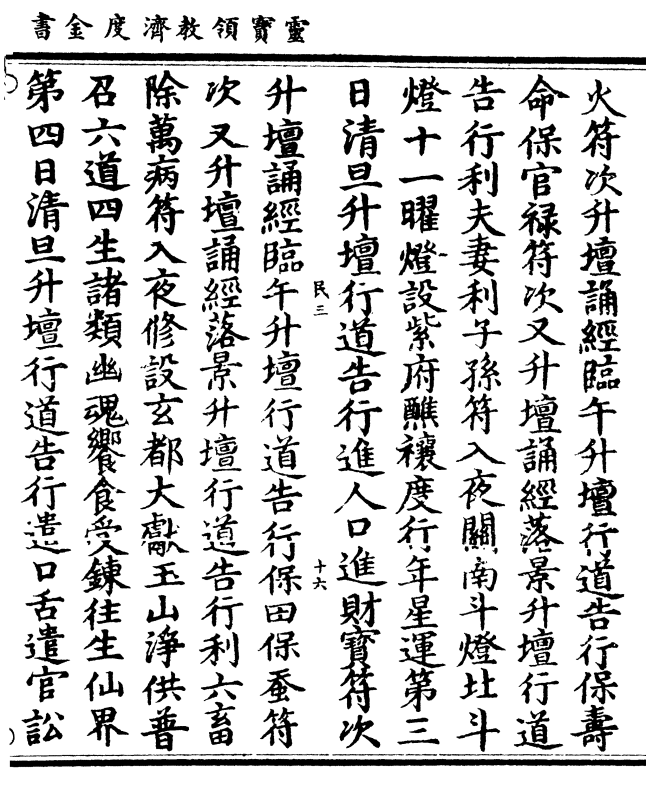 靈寶領教濟度金書
火符次升壇誦經臨午升壇行道告行保壽
命保官祿符次又升壇誦經落景升壇行道
告行利夫妻利子孫符入夜關南斗燈北斗
燈十一曜燈設紫府醮禳度行年星運第三
日清旦升壇行道告行進人口進財寶符次
升壇誦經臨午升壇行道告行保田保蚕符
民三
十六
次又升壇誦經落景升壇行道告行利六畜
除萬病符入夜修設玄都大獻玉山淨供普
召六道四生諸類幽魂饗食受鍊往生仙界
第四日清旦升壇行道告行遣口舌遣官訟